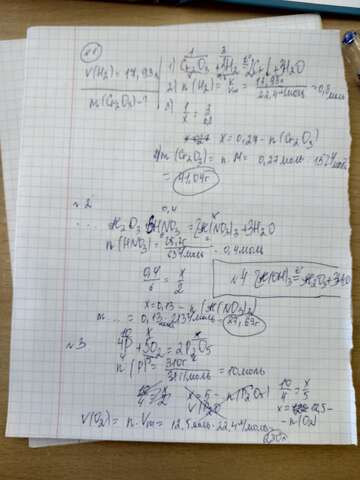 №1
V(H₂) = 17,93л
m(Cr₂O₃) - ?
1) Cr₂O₃ + 3H₂ = 2Cr + 3H₂O
2) n(H₂) = V/Vm = 17,93л / 22,4л/моль = 0,8моль
3) 1/x = 3/0,8
x = 0,27 - n(Cr₂O₃)
4) m(Cr₂O₃) = n · M = 0,27моль · 152г/моль
= 41,04г
№2
6HNO₃ = 2(NO₃)₃ + 3H₂O
n(HNO₃) = 63г/моль = 0,4моль
0,4/6 = x/2
x = 0,13 - n((NO₃)₃)
m = 0,13моль · 213г/моль = 27,69г
№4 (OH)₃ = O₃ + 3H₂O
№3
4P + 5O₂ = 2P₂O₅
n(P) = 310г / 31г/моль = 10моль
10/4 = x/2
x = 5 - n(P₂O₅)
10/4 = x/5
x = 12,5 - n(O₂)
V(O₂) = n · Vm = 12,5моль · 22,4л/моль =